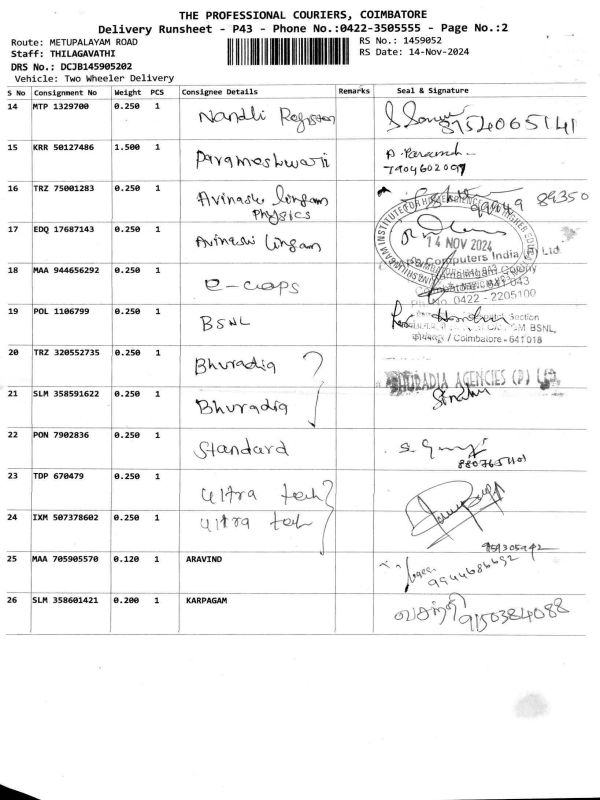 THE PROFESSIONAL COURIERS, COIMBATORE
Delivery Runsheet - P43 - Phone No.:0422-3505555 - Page No.:2
Route: METUPALAYAM ROAD
RS No.: 1459052
Staff: THILAGAVATHI
RS Date: 14-Nov-2024
DRS No.: DCJB145905202
Vehicle: Two Wheeler Delivery
S No Consignment No Weight PCS Consignee Details Remarks Seal & Signature
14 MTP 1329700 0.250 1 Nandhi
8754065141
15 KRR 50127486 1.500 1 Parameshwari
7904602097
16 TRZ 75001283 0.250 1 Avinashi lingam
Physics
89350
17 EDQ 17687143 0.250 1 Avinashi lingam
14 NOV 2024
Computers India (P) Ltd
Colony
043
0422 - 2205100
18 MAA 944656292 0.250 1 e-caps
19 POL 1106799 0.250 1 BSNL
Section
GM BSNL,
/ Coimbatore - 641 018
20 TRZ 320552735 0.250 1 Bhuradia
BHURADIA AGENCIES (P) LTD.
21 SLM 358591622 0.250 1 Bhuradia
22 PON 7902836 0.250 1 Standard
23 TDP 670479 0.250 1 ultra tech
24 IXM 507378602 0.250 1 ultra tech
25 MAA 705905570 0.120 1 ARAVIND
9944686692
26 SLM 358601421 0.200 1 KARPAGAM
9150384088